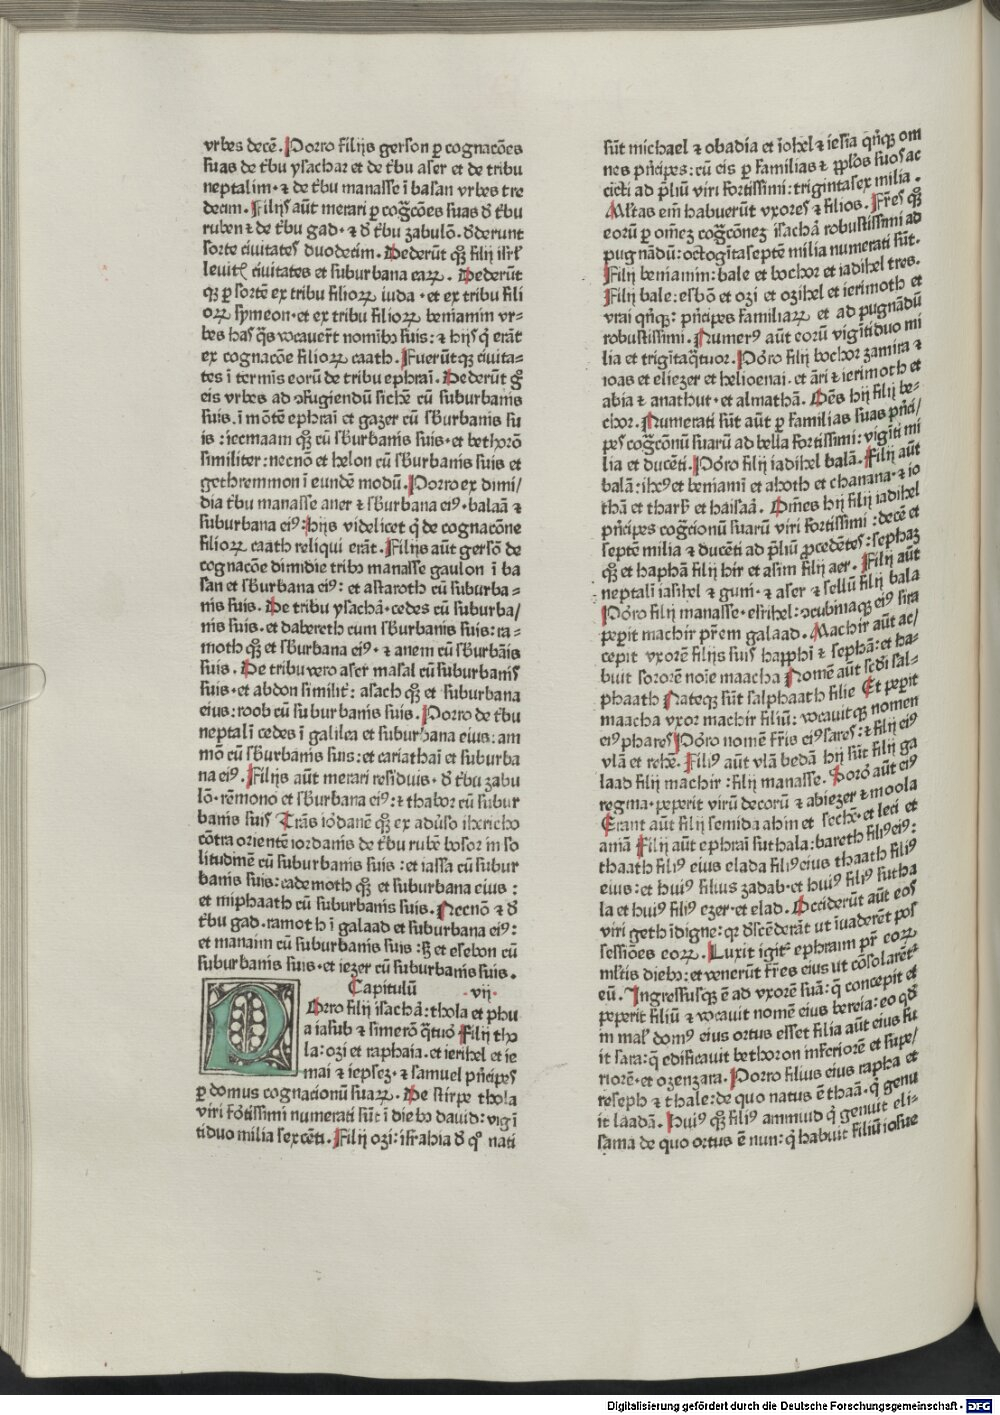 vrbes decē. Porro filijs gerson ꝑ cognacōes
suas de tͥbu ysachar et de tͥbu aser et de tribu
neptalim · ⁊ de tͥbu manasse ī basan vrbes tre
decim. Filijs aūt merari ꝑ cog̃cōes suas ð tͥbu
ruben ⁊ de tͥbu gad · ⁊ ð tͥbu zabulō. ðderunt
sorte ciuitates duodecim. Dederūt qꝫ filij isrł
leuitꝭ ciuitates et suburbana eaꝝ. Dederūt
qꝫ ꝑ sortē ex tribu filioꝝ iuda · et ex tribu fili
oꝝ symeon · et ex tribu filioꝝ beniamin vr=
bes has q̃s vocauert̄ nomībꝰ suis : ⁊ hijs q̇ erāt
ex cognacōe filioꝝ caath. Fuerūtqꝫ ciuita=
tes ī termīs eorū de tribu ephraī. Dederūt gͦ
eis vrbes ad ↄfugiendū sichē cū suburbanis
suis. ī mōte ephraī et gazer cū sb̄urbanis su
is : iecmaam qꝫ cū sb̄urbanis suis · et bethorō
similiter : necnō et helon cū sb̄urbanis suis et
gethremmon ī eundē modū. Porro ex dimi/
dia tͥbu manasse aner ⁊ sb̄urbana eiꝰ · balaā ⁊
suburbana eiꝰ : hijs videlicet q̇ de cognacōne
filioꝝ caath reliqui erāt. Filijs aūt gersō de
cognacōe dimidie tribꝰ manasse gaulon ī ba
san et sb̄urbana eiꝰ : et astaroth cū suburba=
nis suis. De tribu ysachā · cedes cū suburba/
nis suis · et dabereth cum sb̄urbanis suis : ra=
moth qꝫ et sb̄urbana eiꝰ · ⁊ anem cū sb̄urbāis
suis. De tribu vero aser masal cū suburbanis
suis · et abdon similit̄ : asach qꝫ et suburbana
eius : roob cū suburbanis suis. Porro de tͥbu
neptalī cedes ī galilea et suburbana eius : am
mō cū sb̄urbanis suis : et cariathaī et suburba
na eiꝰ. Filijs aūt merari residuis · ð tͥbu zabu
lō · rēmono et sb̄urbana eiꝰ : ⁊ thabor cū subur
banis suis Trās iordanē qꝫ ex adu̓so ihericho
cōtra orientē iordanis de tͥbu rubē bosor in so
litudinē cū suburbanis suis : et iassa cū subur
banis suis : cademoth qꝫ et suburbana eius :
et miphaath cū suburbanis suis. Necnō ⁊ ð
tͥbu gad · ramoth ī galaad et suburbana eiꝰ :
et manaim cū suburbanis suis : sꝫ et esebon cū
suburbanis suis · et iezer cū suburbanis suis.
Capitulū · vij ·
POrro filij isachā : thola et phu
a iasub ⁊ simerō q̄tuor Filij tho
la : ozi et raphaia · et ierihel et ie
mai ⁊ iepsez · ⁊ samuel pͥncipes
ꝑ domus cognacionū suaꝝ. De stirpe thola
viri fōtissimi numerati sūt ī diebꝰ dauid : vigī
tiduo milia sexcēti. Filij ozi : israhia ð qͦ nati
sūt michael ⁊ obadia et iohel ⁊ iesia qͥnqꝫ om
nes pͥncipes : cū eis ꝑ familias ⁊ ppl̓os suos ac
cīcti ad p̄liū viri fortissimi : trigintasex milia.
Ml̓tas em̄ habuerūt vxores ⁊ filios. Frēs qꝫ
eorū ꝑ omēz cog̃cōnez isachā robustissimi ad
pugnādū : octogītaseptē milia numerati sūt.
Filij beniamin : bale et bochor et iadihel tres.
Filij bale : esbō et ozi et ozihel et ierimoth et
vrai qͥnqꝫ : pͥncipes familiaꝝ et ad pugnādū
robustissimi. Numerꝰ aūt eorū vigītiduo mi
lia et trigītaq̄tuor. Porro filij bochor zamira ⁊
ioas et eliezer et helioenai · et āri ⁊ ierimoth et
abia ⁊ anathut · et almathā. Oēs hij filij be=
chor. Numerati sūt aūt ꝑ familias suas pͥnci/
pes cog̃cōnū suarū ad bella fortissimi : vigīti mi
lia et ducēti. Porro filij iadihel balā. Filij aūt
balā : ihꝰ et beniamī et ahoth et chanana · ⁊ io
thā et thars̄ et haisaā. Omēs hij filij iadihel
pͥncipes cog̃cionū suarū viri fortissimi : decē et
septē milia ⁊ ducēti ad p̄liū ꝓcedētes : sephaz
qꝫ et haphā filij hir et asim filij aer. Filij aūt
neptali iasihel ⁊ guni · ⁊ aser ⁊ sellū filij bala
Porro filij manasse · esrihel : ↄcubinaqꝫ eiꝰ sira
peperit machir pr̄em galaad. Machir aūt ac/
cepit vxorē filijs suis happhī ⁊ sephā : et ha=
buit sororē noīe maacha Nomē aūt scd̄i sal=
phaath Nateqꝫ sūt salphaath filie Et peperit
maacha vxor machir filiū : vocauitqꝫ nomen
eiꝰ phares Porro nomē fr̄is eiꝰ sares : ⁊ filij eiꝰ
vlā et rehē. Filiꝰ aūt vlā bedā hij sūt filij ga
laad filij machir : filij manasse. Soror̄ aūt eiꝰ
regina · peperit virū decorū ⁊ abiezer ⁊ moola
Erant aūt filij semida ahin et sechē · et leci et
amā Filij aūt ephraī suthala : bareth filiꝰ eiꝰ :
thaath filiꝰ eius elada filiꝰ eius thaath filiꝰ
eius : et huiꝰ filius zadab · et huiꝰ filiꝰ sutha
la et huiꝰ filiꝰ ezer · et elad. Occiderūt aūt eos
viri geth īdigne : qꝛ dscēderāt ut īuaderēt pos
sessiōes eoꝝ. Luxit igit̄ ephraim pr̄ eoꝝ
ml̓tis diebꝰ : et venerūt fr̄es eius ut cōsolarēt̄
eū. Ingressusqꝫ ē ad vxorē suā : q̄ concepit et
peperit filiū ⁊ vocauit nomē eius bereia : eo qd̄
in mal̓ domꝰ eius ortus esset filia aūt eius fu
it sara : q̄ edificauit bethoron inferiorē et supe/
riorē · et ozenzara. Porro filius eius rapha et
reseph ⁊ thale : de quo natus ē thaā · q̇ genu
it laadā. Huiꝰ qꝫ filiꝰ ammiud q̇ genuit eli=
sama de quo ortus ē nun : q̇ habuit filiū iosue
Digitalisierung gefördert durch die Deutsche Forschungsgemeinschaft - DFG